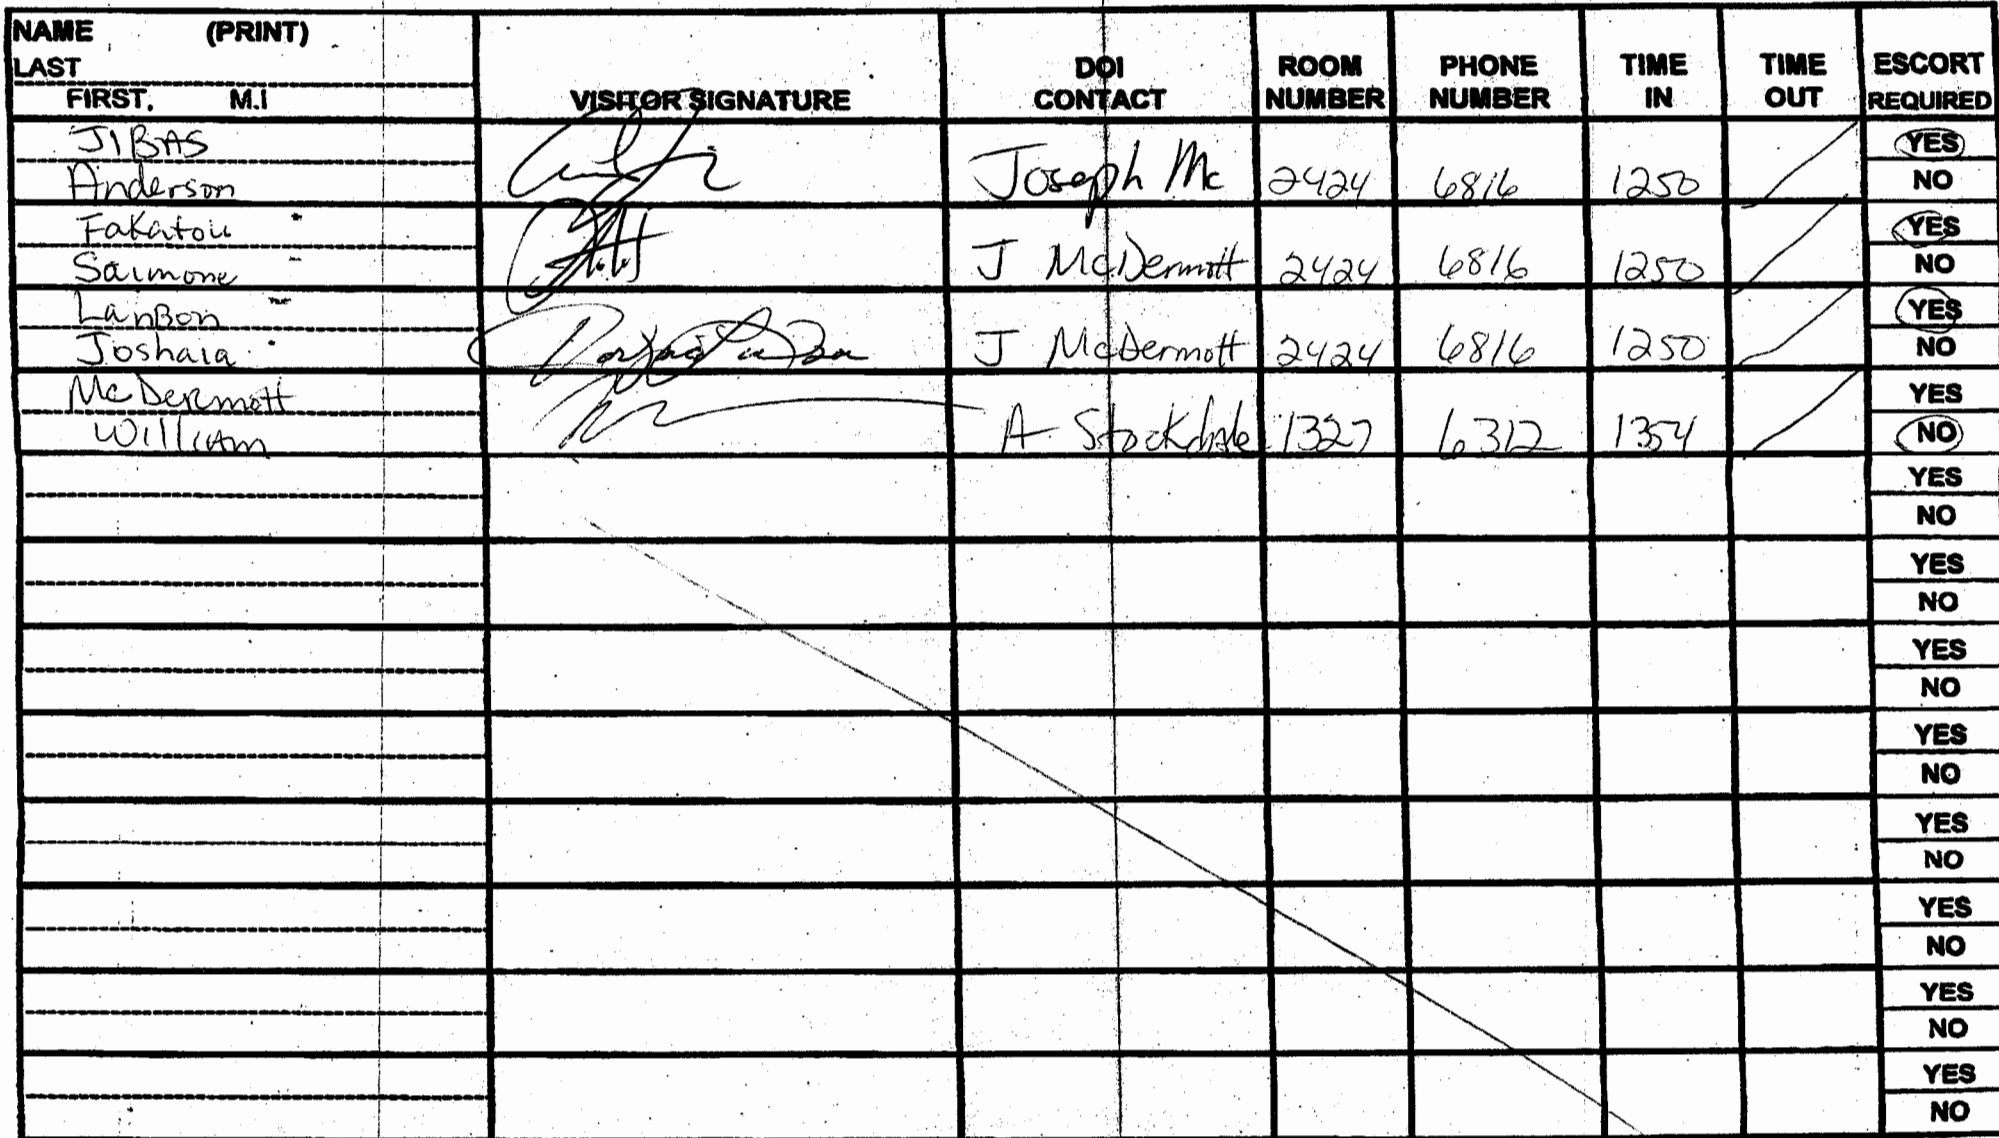 NAME (PRINT)
LAST
FIRST, M.I
VISITOR SIGNATURE
DOI CONTACT
ROOM NUMBER
PHONE NUMBER
TIME IN
TIME OUT
ESCORT REQUIRED
JIBAS
Anderson
Joseph Mc 2424 6816 1250
YES
NO
Fakatou
Saimone
J McDermott 2424 6816 1250
YES
NO
LanBon
Joshaia
J McDermott 2424 6816 1250
YES
NO
McDermott
William
A Stockdale 1327 6312 1354
YES
NO
YES
NO
YES
NO
YES
NO
YES
NO
YES
NO
YES
NO
YES
NO
YES
NO